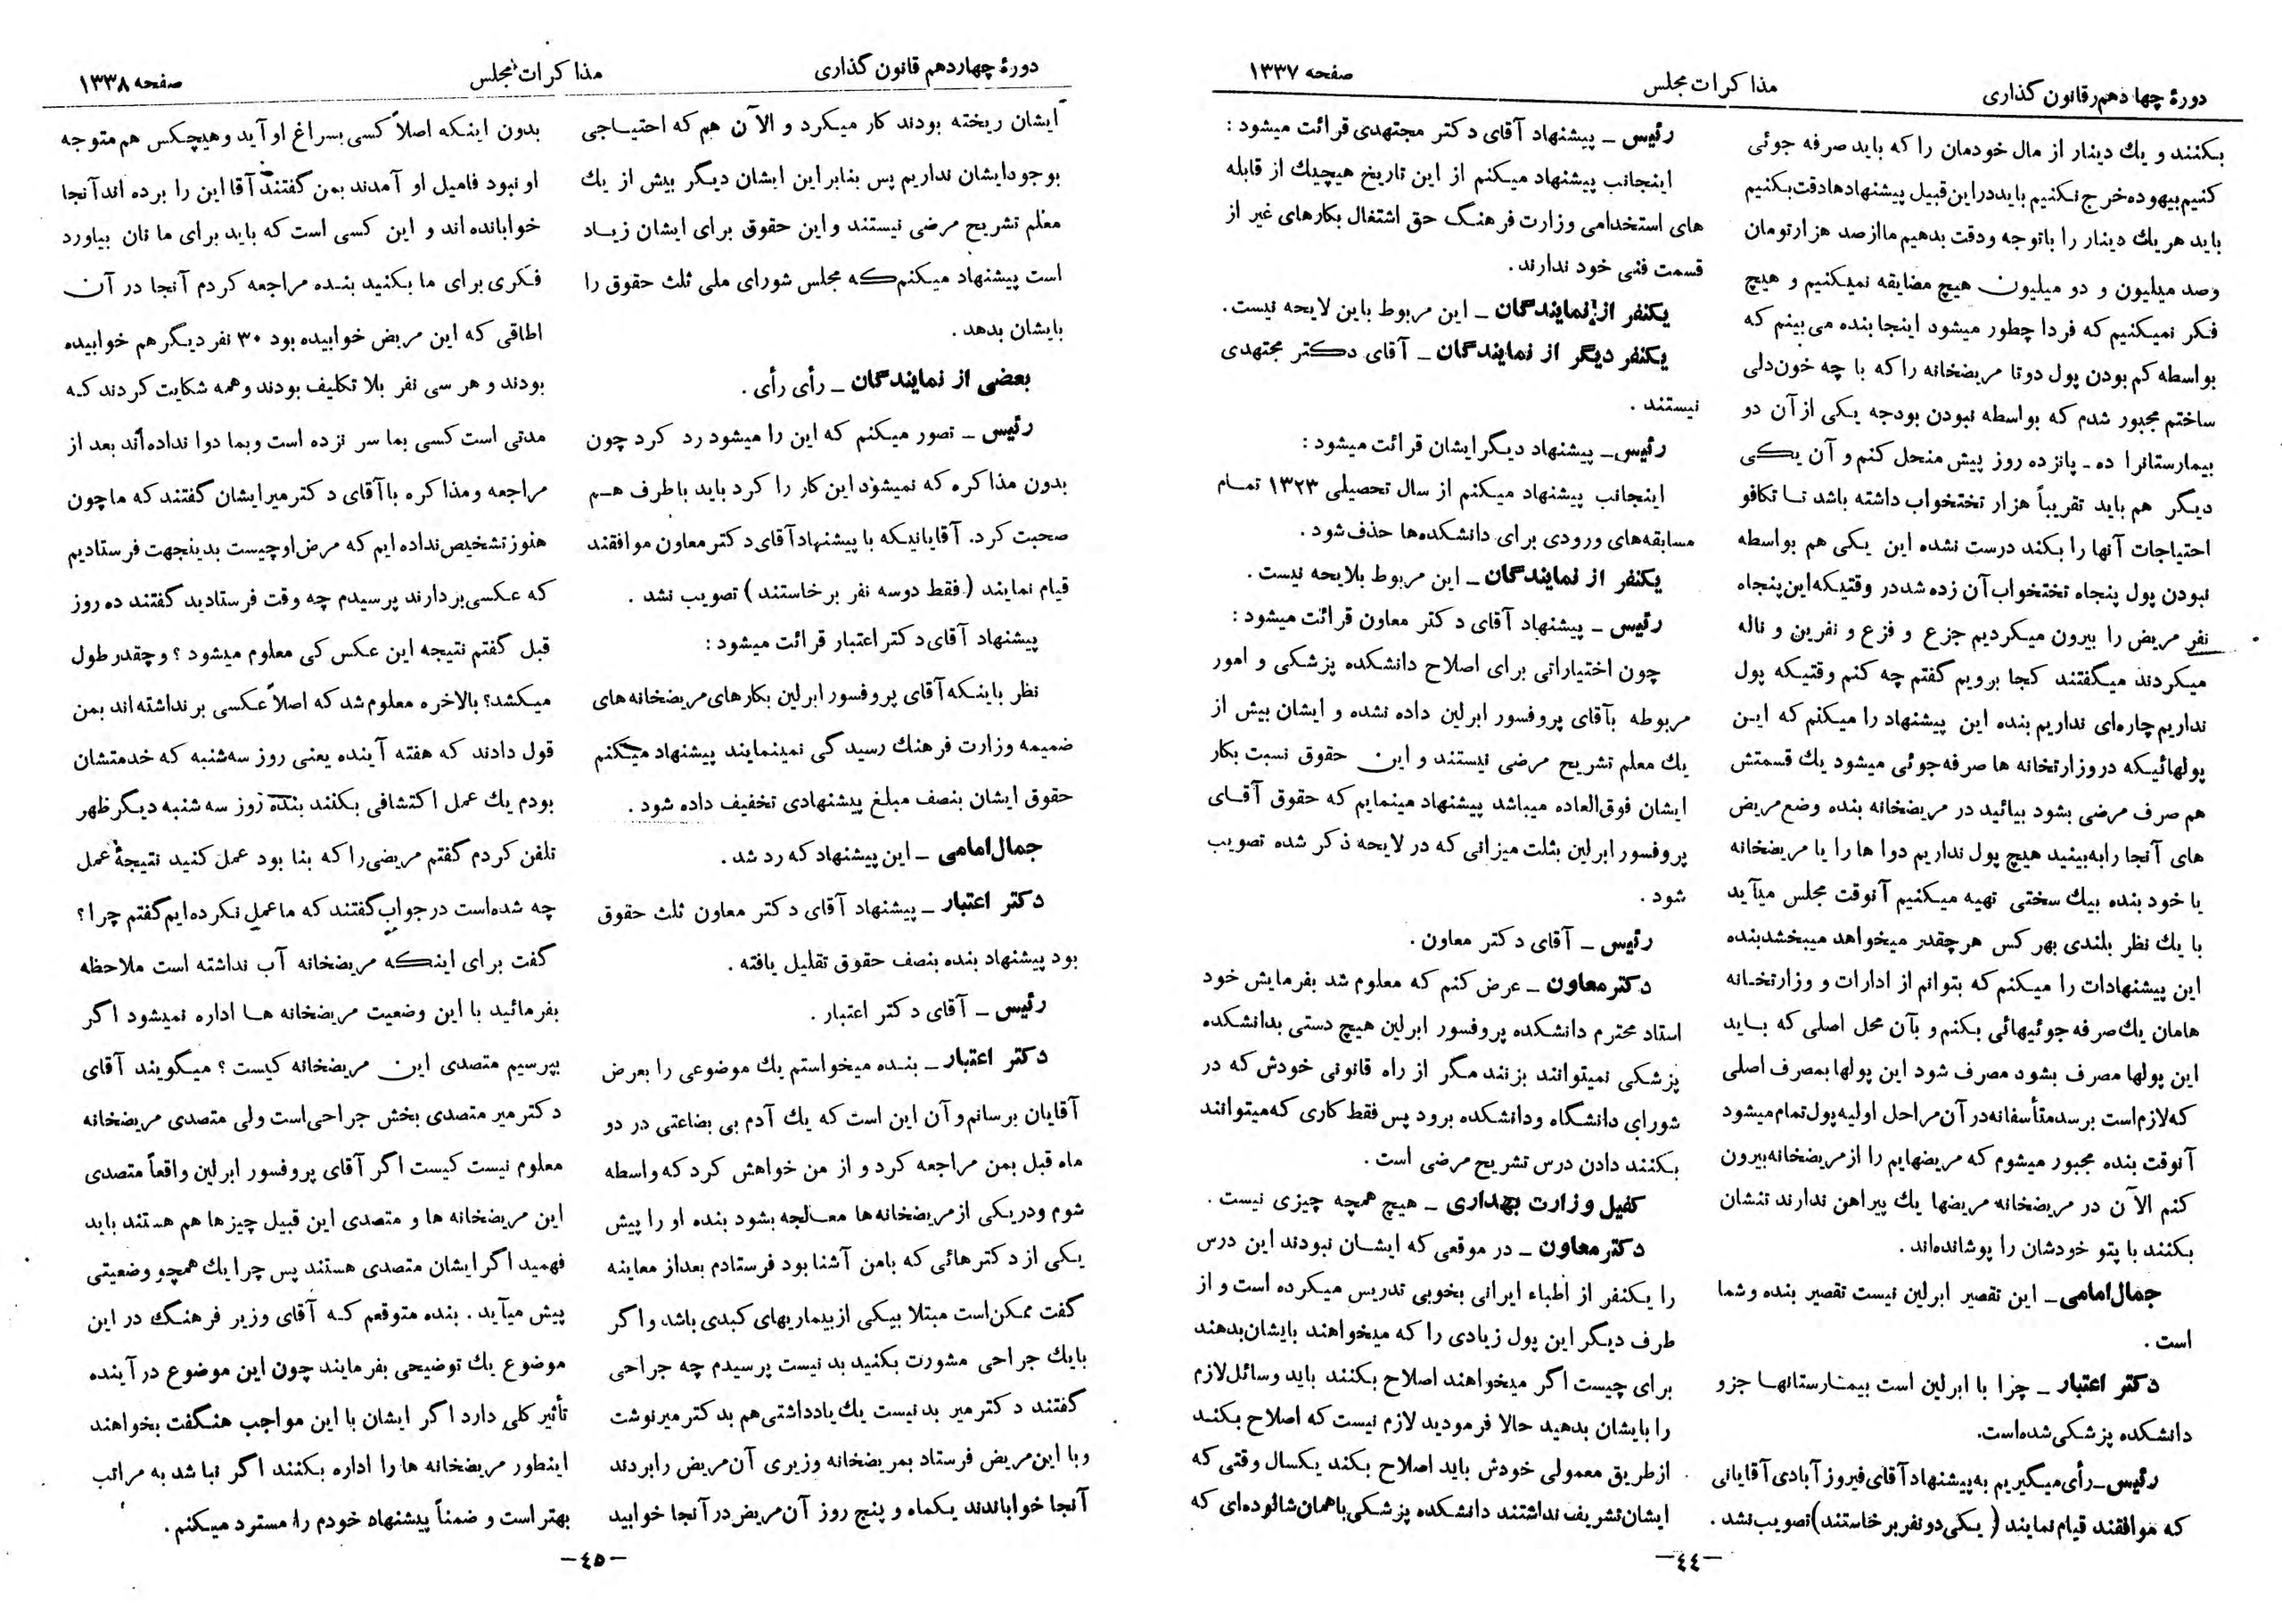 دورهٔ چهاردهم قانون گذاری
مذاکرات مجلس
صفحه ۱۳۳۷
بکنند و یك دینار از مال خودمان را که باید صرفه جوئی
کنیم بیهوده خرج نکنیم باید در این قبیل پیشنهادها دقت بکنیم
باید هر یك دینار را باتوجه ودقت بدهیم ما از صد هزار تومان
وصد میلیون و دو میلیون هیچ مضایقه نمیکنیم و هیچ
فکر نمیکنیم که فردا چطور میشود اینجا بنده می بینم که
بواسطه کم بودن پول دوتا مریضخانه را که با چه خون دلی
ساختم مجبور شدم که بواسطه نبودن بودجه یکی از آن دو
بیمارستانرا ده ـ پانزده روز پیش منحل کنم و آن یکی
دیگر هم باید تقریباً هزار تختخواب داشته باشد تا تکافو
احتیاجات آنها را بکند درست نشده این یکی هم بواسطه
نبودن پول پنجاه تختخواب آن زده شد در وقتیکه این پنجاه
نفر مریض را بیرون میکردیم جزع و فزع و نفرین و ناله
میکردند میگفتند کجا برویم گفتم چه کنم وقتیکه پول
نداریم چاره‌ای نداریم بنده این پیشنهاد را میکنم که این
پولهائیکه در وزارتخانه ها صرفه جوئی میشود یك قسمتش
هم صرف مرضی بشود بیائید در مریضخانه بنده وضع مریض
های آنجا را به بینید هیچ پول نداریم دوا ها را یا مریضخانه
یا خود بنده بیك سختی تهیه میکنیم آنوقت مجلس میآید
با یك نظر بلندی بهر کس هر چقدر میخواهد میبخشد بنده
این پیشنهادات را میکنم که بتوانم از ادارات و وزارتخانه
هامان یك صرفه جوئیهائی بکنم و بآن محل اصلی که باید
این پولها مصرف بشود مصرف شود این پولها بمصرف اصلی
که لازم است برسد متأسفانه در آن مراحل اولیه پول تمام میشود
آنوقت بنده مجبور میشوم که مریضهایم را از مریضخانه بیرون
کنم الآن در مریضخانه مریضها یك پیراهن ندارند تنشان
بکنند با پتو خودشان را پوشانده‌اند .
جمال امامی ـ این تقصیر ابرلین نیست تقصیر بنده وشما
است .
دکتر اعتبار ـ چرا با ابرلین است بیمارستانها جزو
دانشکده پزشکی شده است.
رئیس ـ رأی میگیریم به پیشنهاد آقای فیروز آبادی آقایانی
که موافقند قیام نمایند ( یکی دو نفر برخاستند) تصویب نشد .
رئیس ـ پیشنهاد آقای دکتر مجتهدی قرائت میشود :
اینجانب پیشنهاد میکنم از این تاریخ هیچیك از قابله
های استخدامی وزارت فرهنگ حق اشتغال بکارهای غیر از
قسمت فنی خود ندارند .
یکنفر از نمایندگان ـ این مربوط باین لایحه نیست .
یکنفر دیگر از نمایندگان ـ آقای دکتر مجتهدی
نیستند .
رئیس ـ پیشنهاد دیگر ایشان قرائت میشود :
اینجانب پیشنهاد میکنم از سال تحصیلی ۱۳۲۳ تمام
مسابقه‌های ورودی برای دانشکده‌ها حذف شود .
یکنفر از نمایندگان ـ این مربوط بلایحه نیست .
رئیس ـ پیشنهاد آقای دکتر معاون قرائت میشود :
چون اختیاراتی برای اصلاح دانشکده پزشکی و امور
مربوطه بآقای پروفسور ابرلین داده نشده و ایشان بیش از
یك معلم تشریح مرضی نیستند و این حقوق نسبت بکار
ایشان فوق‌العاده میباشد پیشنهاد مینمایم که حقوق آقای
پروفسور ابرلین بثلث میزانی که در لایحه ذکر شده تصویب
شود .
رئیس ـ آقای دکتر معاون .
دکتر معاون ـ عرض کنم که معلوم شد بفرمایش خود
استاد محترم دانشکده پروفسور ابرلین هیچ دستی بدانشکده
پزشکی نمیتوانند بزنند مگر از راه قانونی خودش که در
شورای دانشگاه ودانشکده برود پس فقط کاری که میتوانند
بکنند دادن درس تشریح مرضی است .
کفیل وزارت بهداری ـ هیچ همچه چیزی نیست .
دکتر معاون ـ در موقعی که ایشان نبودند این درس
را یکنفر از اطباء ایرانی بخوبی تدریس میکرده است و از
طرف دیگر این پول زیادی را که میخواهند بایشان بدهند
برای چیست اگر میخواهند اصلاح بکنند باید وسائل لازم
را بایشان بدهید حالا فرمودید لازم نیست که اصلاح بکند
از طریق معمولی خودش باید اصلاح بکند یکسال وقتی که
ایشان تشریف نداشتند دانشکده پزشکی با همان شالوده‌ای که
ـ٤٤ـ
دورهٔ چهاردهم قانون گذاری
مذاکرات مجلس
صفحه ۱۳۳۸
ایشان ریخته بودند کار میکرد و الآن هم که احتیاجی
بوجود ایشان نداریم پس بنابر این ایشان دیگر بیش از یك
معلم تشریح مرضی نیستند و این حقوق برای ایشان زیاد
است پیشنهاد میکنم که مجلس شورای ملی ثلث حقوق را
بایشان بدهد .
بعضی از نمایندگان ـ رأی رأی .
رئیس ـ تصور میکنم که این را میشود رد کرد چون
بدون مذاکره که نمیشود این کار را کرد باید با طرف هم
صحبت کرد. آقایانیکه با پیشنهاد آقای دکتر معاون موافقند
قیام نمایند ( فقط دوسه نفر برخاستند ) تصویب نشد .
پیشنهاد آقای دکتر اعتبار قرائت میشود :
نظر باینکه آقای پروفسور ابرلین بکارهای مریضخانه های
ضمیمه وزارت فرهنك رسیدگی نمینمایند پیشنهاد میکنم
حقوق ایشان بنصف مبلغ پیشنهادی تخفیف داده شود .
جمال امامی ـ این پیشنهاد که رد شد .
دکتر اعتبار ـ پیشنهاد آقای دکتر معاون ثلث حقوق
بود پیشنهاد بنده بنصف حقوق تقلیل یافته .
رئیس ـ آقای دکتر اعتبار .
دکتر اعتبار ـ بنده میخواستم یك موضوعی را بعرض
آقایان برسانم و آن این است که یك آدم بی بضاعتی در دو
ماه قبل بمن مراجعه کرد و از من خواهش کرد که واسطه
شوم ودر یکی از مریضخانه‌ها معالجه بشود بنده او را پیش
یکی از دکترهائی که بامن آشنا بود فرستادم بعد از معاینه
گفت ممکن است مبتلا بیکی از بیماریهای کبدی باشد و اگر
بایك جراحی مشورت بکنید بد نیست پرسیدم چه جراحی
گفتند دکتر میر بد نیست یك یادداشتی هم بدکتر میر نوشت
و با این مریض فرستاد بمریضخانه وزیری آن مریض را بردند
آنجا خواباندند یکماه و پنج روز آن مریض در آنجا خوابید
بدون اینکه اصلاً کسی بسراغ او آید و هیچکس هم متوجه
او نبود فامیل او آمدند بمن گفتند آقا این را برده اند آنجا
خوابانده اند و این کسی است که باید برای ما نان بیاورد
فکری برای ما بکنید بنده مراجعه کردم آنجا در آن
اطاقی که این مریض خوابیده بود ۳۰ نفر دیگر هم خوابیده
بودند و هر سی نفر بلا تکلیف بودند وهمه شکایت کردند که
مدتی است کسی بما سر نزده است وبما دوا نداده‌اند بعد از
مراجعه و مذاکره با آقای دکتر میر ایشان گفتند که ما چون
هنوز تشخیص نداده ایم که مرض او چیست بدینجهت فرستادیم
که عکسی بردارند پرسیدم چه وقت فرستادید گفتند ده روز
قبل گفتم نتیجه این عکس کی معلوم میشود ؟ و چقدر طول
میکشد؟ بالاخره معلوم شد که اصلاً عکسی برنداشته‌اند بمن
قول دادند که هفته آینده یعنی روز سه‌شنبه که خدمتشان
بودم یك عمل اکتشافی بکنند بنده روز سه شنبه دیگر ظهر
تلفن کردم گفتم مریضی را که بنا بود عمل کنید نتیجهٔ عمل
چه شده‌است در جواب گفتند که ما عمل نکرده‌ایم گفتم چرا ؟
گفت برای اینکه مریضخانه آب نداشته است ملاحظه
بفرمائید با این وضعیت مریضخانه ها اداره نمیشود اگر
بپرسیم متصدی این مریضخانه کیست ؟ میگویند آقای
دکتر میر متصدی بخش جراحی است ولی متصدی مریضخانه
معلوم نیست کیست اگر آقای پروفسور ابرلین واقعاً متصدی
این مریضخانه ها و متصدی این قبیل چیزها هم هستند باید
فهمید اگر ایشان متصدی هستند پس چرا یك همچو وضعیتی
پیش میآید . بنده متوقعم که آقای وزیر فرهنگ در این
موضوع یك توضیحی بفرمایند چون این موضوع در آینده
تأثیر کلی دارد اگر ایشان با این مواجب هنگفت بخواهند
اینطور مریضخانه ها را اداره بکنند اگر نباشد به مراتب
بهتر است و ضمناً پیشنهاد خودم را مسترد میکنم .
ـ٤٥ـ